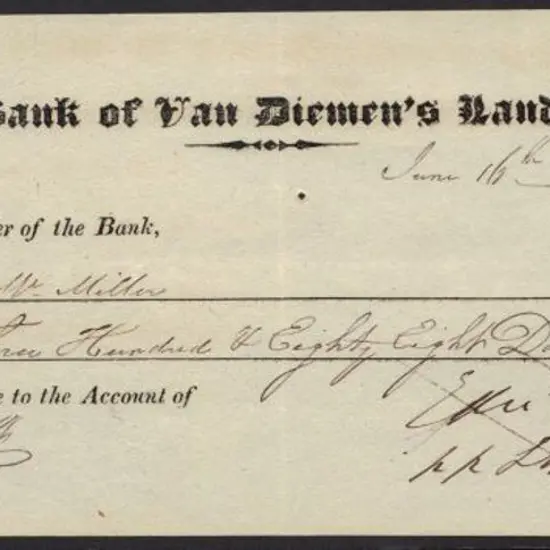 Bank of Van Diemen's Land
June 16th
er of the Bank,
Mr Miller
Hundred & Eighty Eight Do
e to the Account of
pp